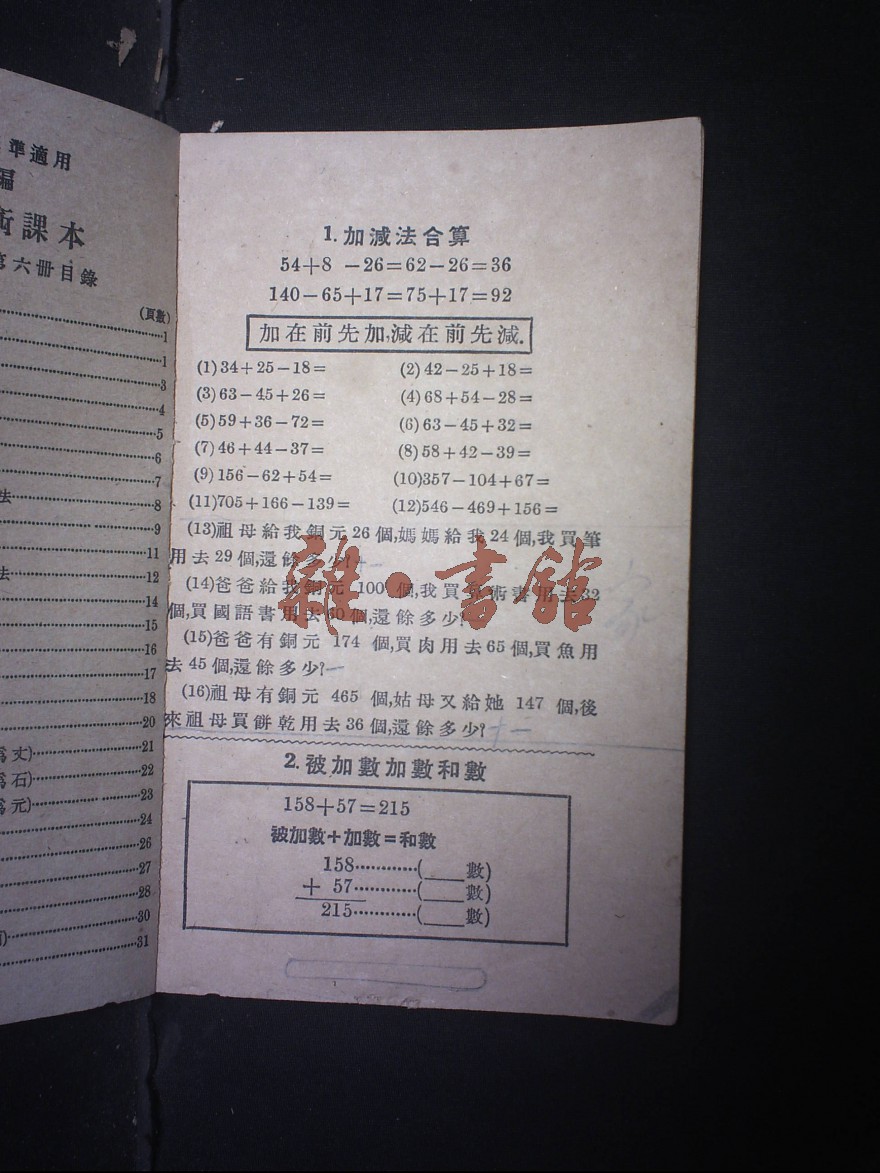 準適用
編
術課本
第六冊目錄
(頁數)
1
1
3
4
5
6
7
去 8
9
11
去 12
14
15
16
17
18
20
為丈) 21
為石) 22
為元) 23
24
26
27
28
30
31
1.加減法合算
54+8 -26=62-26=36
140-65+17=75+17=92
加在前先加,減在前先減.
(1)34+25-18= (2)42-25+18=
(3)63-45+26= (4)68+54-28=
(5)59+36-72= (6)63-45+32=
(7)46+44-37= (8)58+42-39=
(9)156-62+54= (10)357-104+67=
(11)705+166-139= (12)546-469+156=
(13)祖母給我銅元26個,媽媽給我24個,我買筆
用去29個,還餘多少?
(14)爸爸給我銅元 100 個,我買算術書用去32
個,買國語書用去40個,還餘多少?
(15)爸爸有銅元 174 個,買肉用去65個,買魚用
去45個,還餘多少?
(16)祖母有銅元 465 個,姑母又給她 147 個,後
來祖母買餅乾用去36個,還餘多少?
2.被加數加數和數
158+57=215
被加數+加數=和數
158…………(___數)
+ 57…………(___數)
215…………(___數)
雜·書館